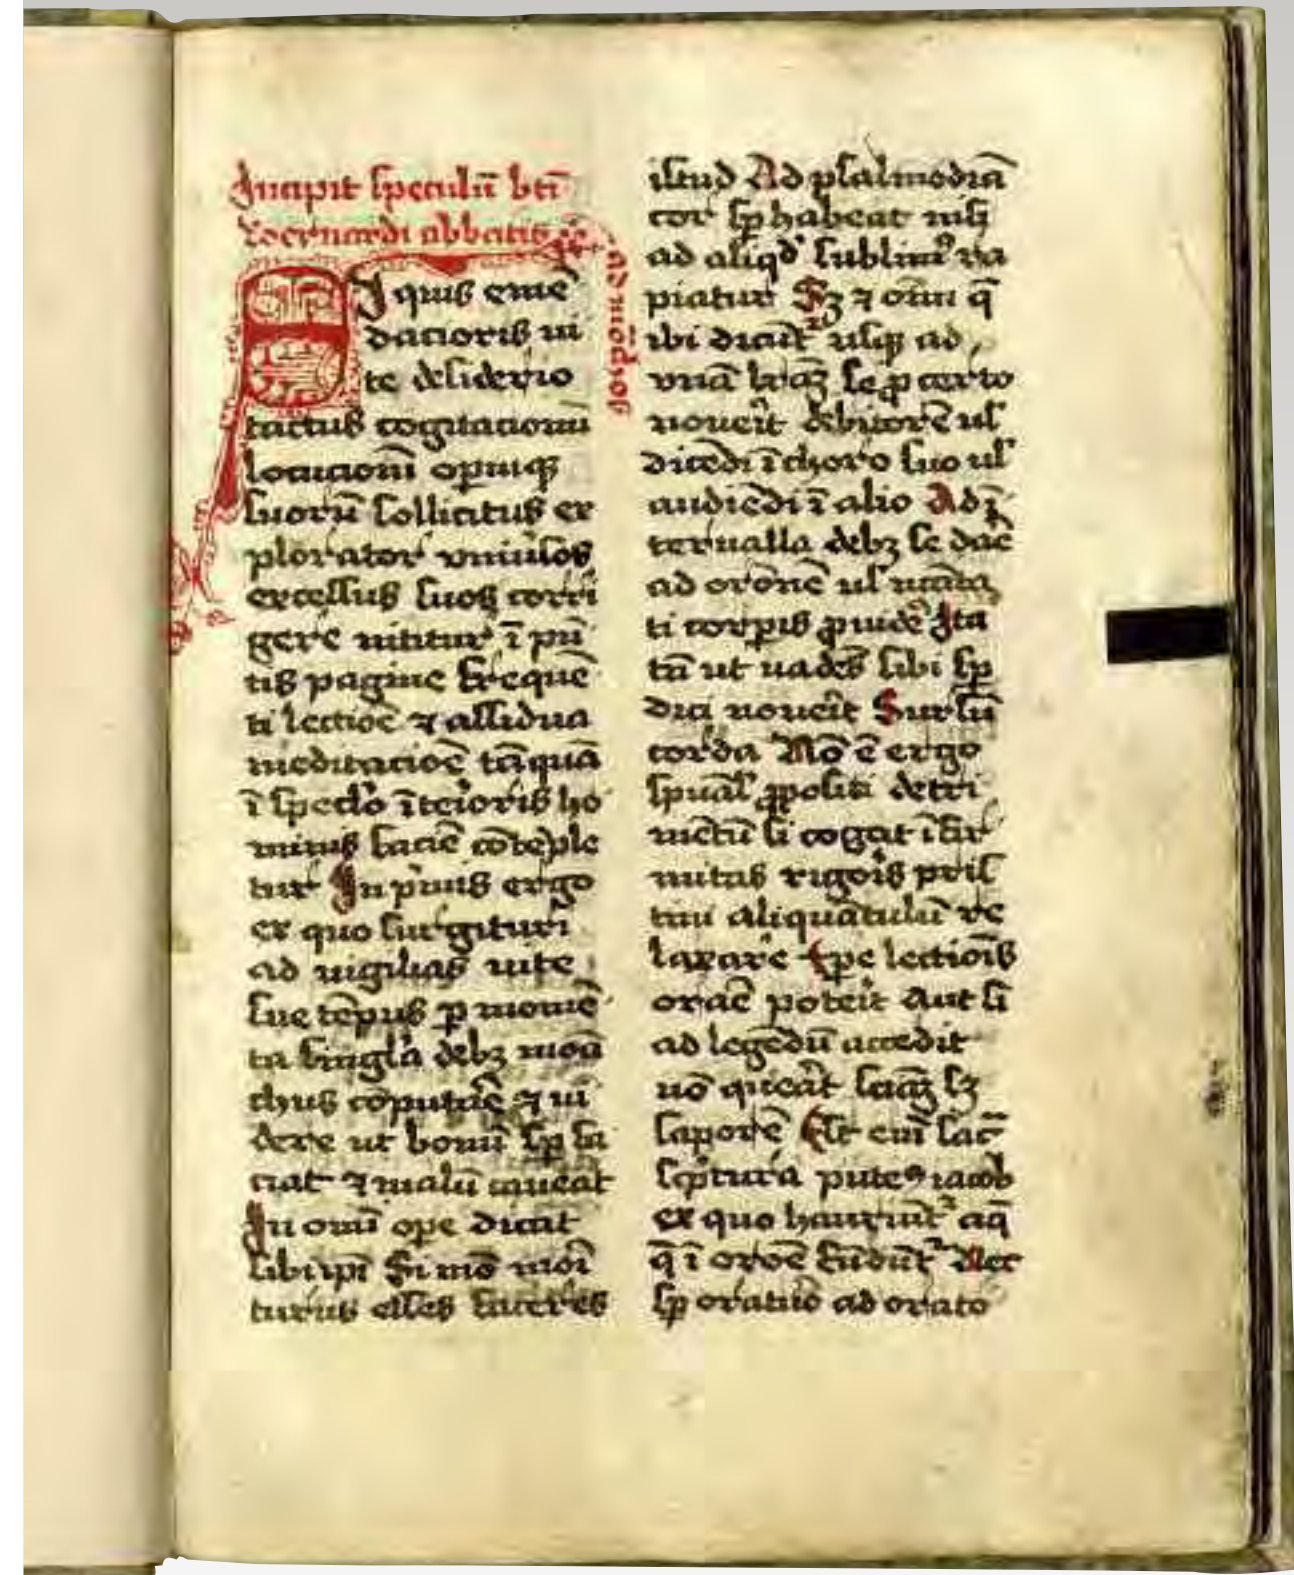 Incipit speculū bti
Bernardi abbatis
de mōchor
Iquis eme
dacioris ui
te desiderio
tactus cogitacionū
locucionū operūqꝫ
suorū sollicitus ex
plorator vniūsos
excessus suos corri
gere nititur ī pn̄
tis pagine freque̅
ti lectioe̅ ⁊ assidua
meditacioe̅ ta̅qua̅
ī speclo īteioris ho
minis facie̅ co̅te̅ple
tur In p'mis ergo
ex quo surgitur
ad uigilias uite
sue te̅pus ꝑ mome̅
ta singla debꝫ mona
chus co̅putare̅ ⁊ ui
dere ut bonū sp̄ fa
ciat ⁊ malū caueat
In omī ope dicat
sibi ipī Si mō mori
turus esses faceres
istud Ad psalmodia̅
cor sp̄ habeat nisi
ad aliqd' sublimiꝰ ra
piatur Sꝫ ⁊ om̅i q̄
ibi dicūt' usqꝫ ad
vna̅ lr̄aꝫ se ꝓ certo
nouerit debitore̅ ul'
dice̅di ī choro suo ul'
audie̅di ī alio Ad ī
terualla debꝫ se dare̅
ad orōne̅ ul'
ti corꝑis ꝓuide̅ Ita
ta̅ ut uades sibi sp̄
dici nouerit Sursū
corda Nō ē ergo
spūal' ꝓpositi detri
me̅tū si cogat ī fir
mitas rigoris pris
tini aliqua̅tulū re
laxare Tpe lectiōis
orare̅ poterit Aut si
ad lege̅dū accedit
nō querat sciaꝫ sꝫ
sapore̅ Est eni̅ sac̄
sc'ptura puteꝰ iacob
ex quo hauriūt' aq̄
q̄ ī oroe̅ fu̅du̅t' Nec
sp̄ oraturꝰ ad orato